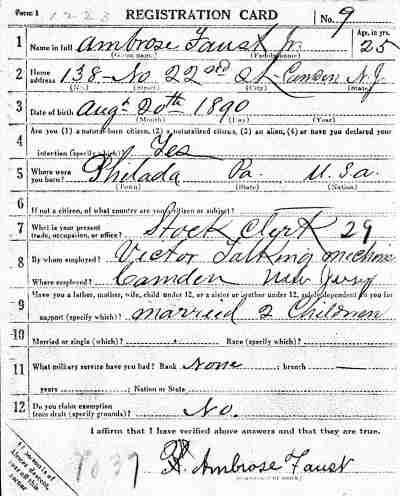 Form 1 1223 REGISTRATION CARD No. 9
1 Name in full Ambrose Faust Jr. Age, in yrs. 25
(Given name) (Family name)
2 Home address 138-No. 22nd St. Camden N.J.
(No.) (Street) (City) (State)
3 Date of birth Augt 20th 1890
(Month) (Day) (Year)
Are you (1) a natural-born citizen, (2) a naturalized citizen, (3) an alien, (4) or have you declared your
4 intention (specify which)? Yes
5 Where were you born? Philada Pa. U.S.a.
(Town) (State) (Nation)
6 If not a citizen, of what country are you a citizen or subject?
7 What is your present trade, occupation, or office? Stock Clerk 29
8 By whom employed? Victor Talking Machine
Where employed? Camden New Jersey
9 Have you a father, mother, wife, child under 12, or a sister or brother under 12, solely dependent on you for
support (specify which)? married 2 Children
10 Married or single (which)? Race (specify which)?
11 What military service have you had? Rank None ; branch —
years ; Nation or State
12 Do you claim exemption from draft (specify grounds)? No.
I affirm that I have verified above answers and that they are true.
Ambrose Faust
If person is of African descent, tear off this corner